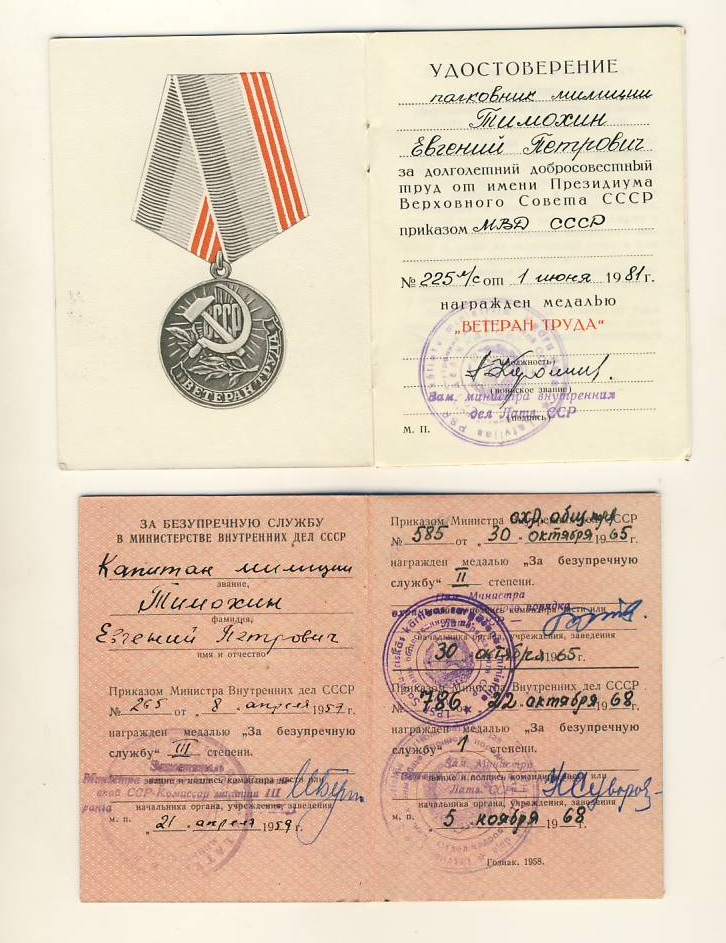 СССР
ВЕТЕРАН ТРУДА
УДОСТОВЕРЕНИЕ
полковник милиции
Тимохин
Евгений Петрович
за долголетний добросовестный
труд от имени Президиума
Верховного Совета СССР
приказом МВД СССР
№ 225 л/с от 1 июня 1981 г.
награжден медалью
„ВЕТЕРАН ТРУДА“
(должность)
(воинское звание)
Зам. министра внутренних
дел Латв. ССР
(подпись)
М. П.
ЗА БЕЗУПРЕЧНУЮ СЛУЖБУ
В МИНИСТЕРСТВЕ ВНУТРЕННИХ ДЕЛ СССР
Капитан милиции
звание,
Тимохин
фамилия,
Евгений Петрович
имя и отчество
Приказом Министра Внутренних дел СССР
№ 265 от „8„ апреля 1959 г.
награжден медалью „За безупречную
службу“ III степени.
звание и подпись командира части или
ССР-Комиссар милиции III
начальника органа, учреждения, заведения
м. п. „21„ апреля 1959 г.
охр. общ.
Приказом Министра Внутренних дел СССР
№ 585 от „30„ октября 1965 г.
награжден медалью „За безупречную
службу“ II степени.
Министра
порядка
звание и подпись командира части или
начальника органа, учреждения, заведения
30 октября 1965 г.
Приказом Министра Внутренних дел СССР
№ 786 от 22 октября 1968 г.
награжден медалью „За безупречную
службу“ 1 степени.
Зам. Министра
звание и подпись командира части или
Латв. ССР
начальника органа, учреждения, заведения
м. п. „5„ ноября 1968 г.
Гознак. 1958.